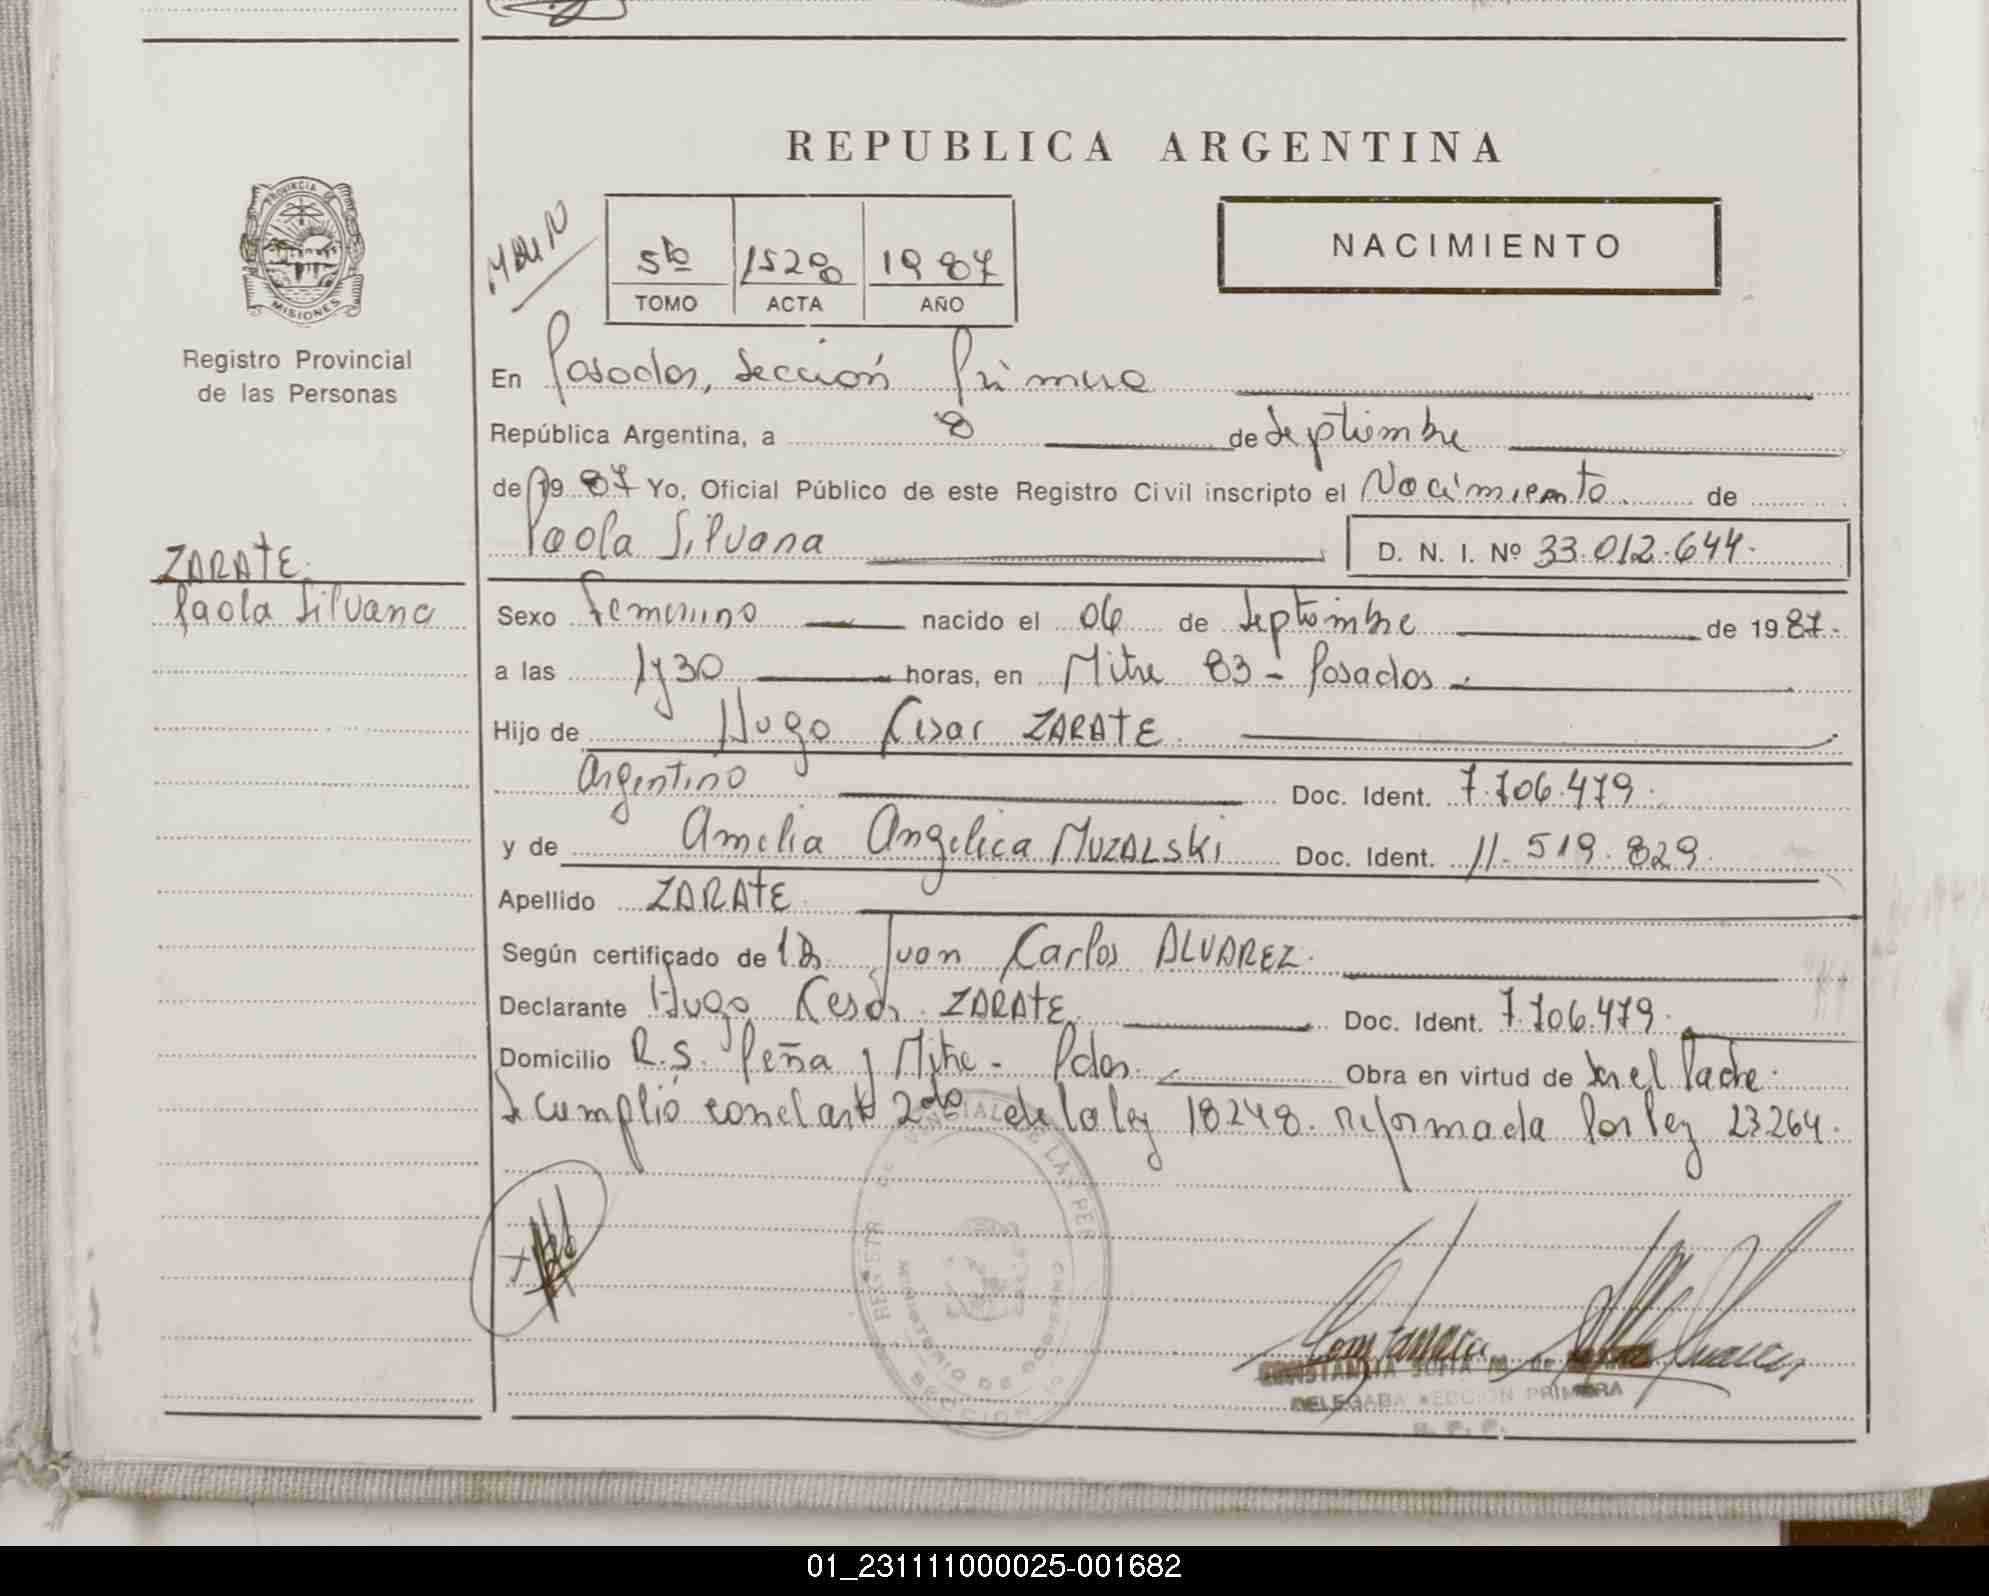 REPUBLICA ARGENTINA
PROVINCIA DE
MISIONES
Registro Provincial
de las Personas
5to 1528 1987
TOMO ACTA AÑO
NACIMIENTO
En Posadas, Sección Primera
República Argentina, a 8 de Septiembre
de 1987 Yo, Oficial Público de este Registro Civil inscripto el Nacimiento de
Paola Silvana D. N. I. Nº 33.012.644.
ZARATE.
Paola Silvana
Sexo Femenino nacido el 06 de Septiembre de 1987.
a las 1y30 horas, en Mitre 83 - Posadas.
Hijo de Hugo Cesar ZARATE
Argentino Doc. Ident. 7.706.479.
y de Amelia Angelica MUZALSKI Doc. Ident. 11.519.829.
Apellido ZARATE.
Según certificado de Dr. Juan Carlos ALVAREZ.
Declarante Hugo Cesar ZARATE Doc. Ident. 7.706.479.
Domicilio R.S. Peña y Mitre - Pdas. Obra en virtud de Ser el Padre.
Se cumplió con el art 2do de la ley 18248. reformada por ley 23264.
MINISTERIO DE GOBIERNO
DELEGADA SECCION PRIMERA
R. P. P.
01_231111000025-001682